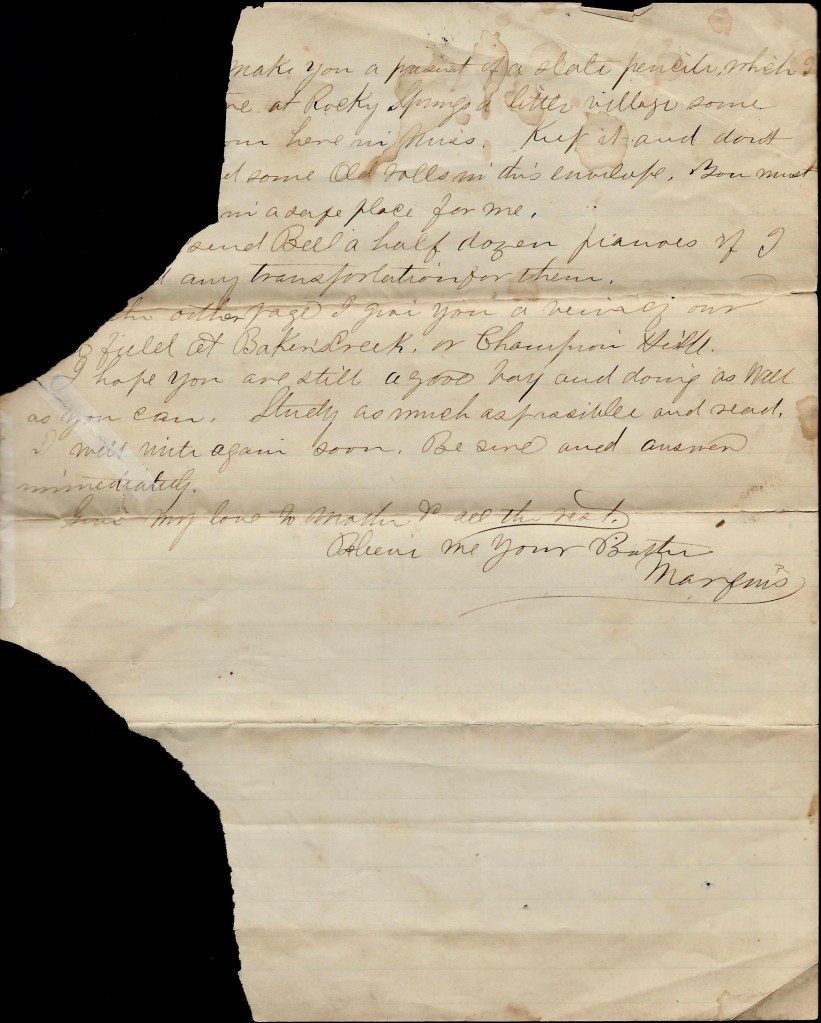 make you a present of a slate pencils, which I
at Rocky Springs a little village some
here in Miss. Keep it and dont
some Old rolls in this envelope, You must
in a safe place for me.
send Bell a half dozen pianoes if I
any transportation for them.
the other page I give you a view of our
field at Baker's Creek, or Champion Hill.
I hope you are still a good boy and doing as well
as you can. Study as much as possible and read.
I will write again soon. Be sure and answer
immediately.
Give my love to Mother & all the rest.
Believe me Your Brother
Marquis